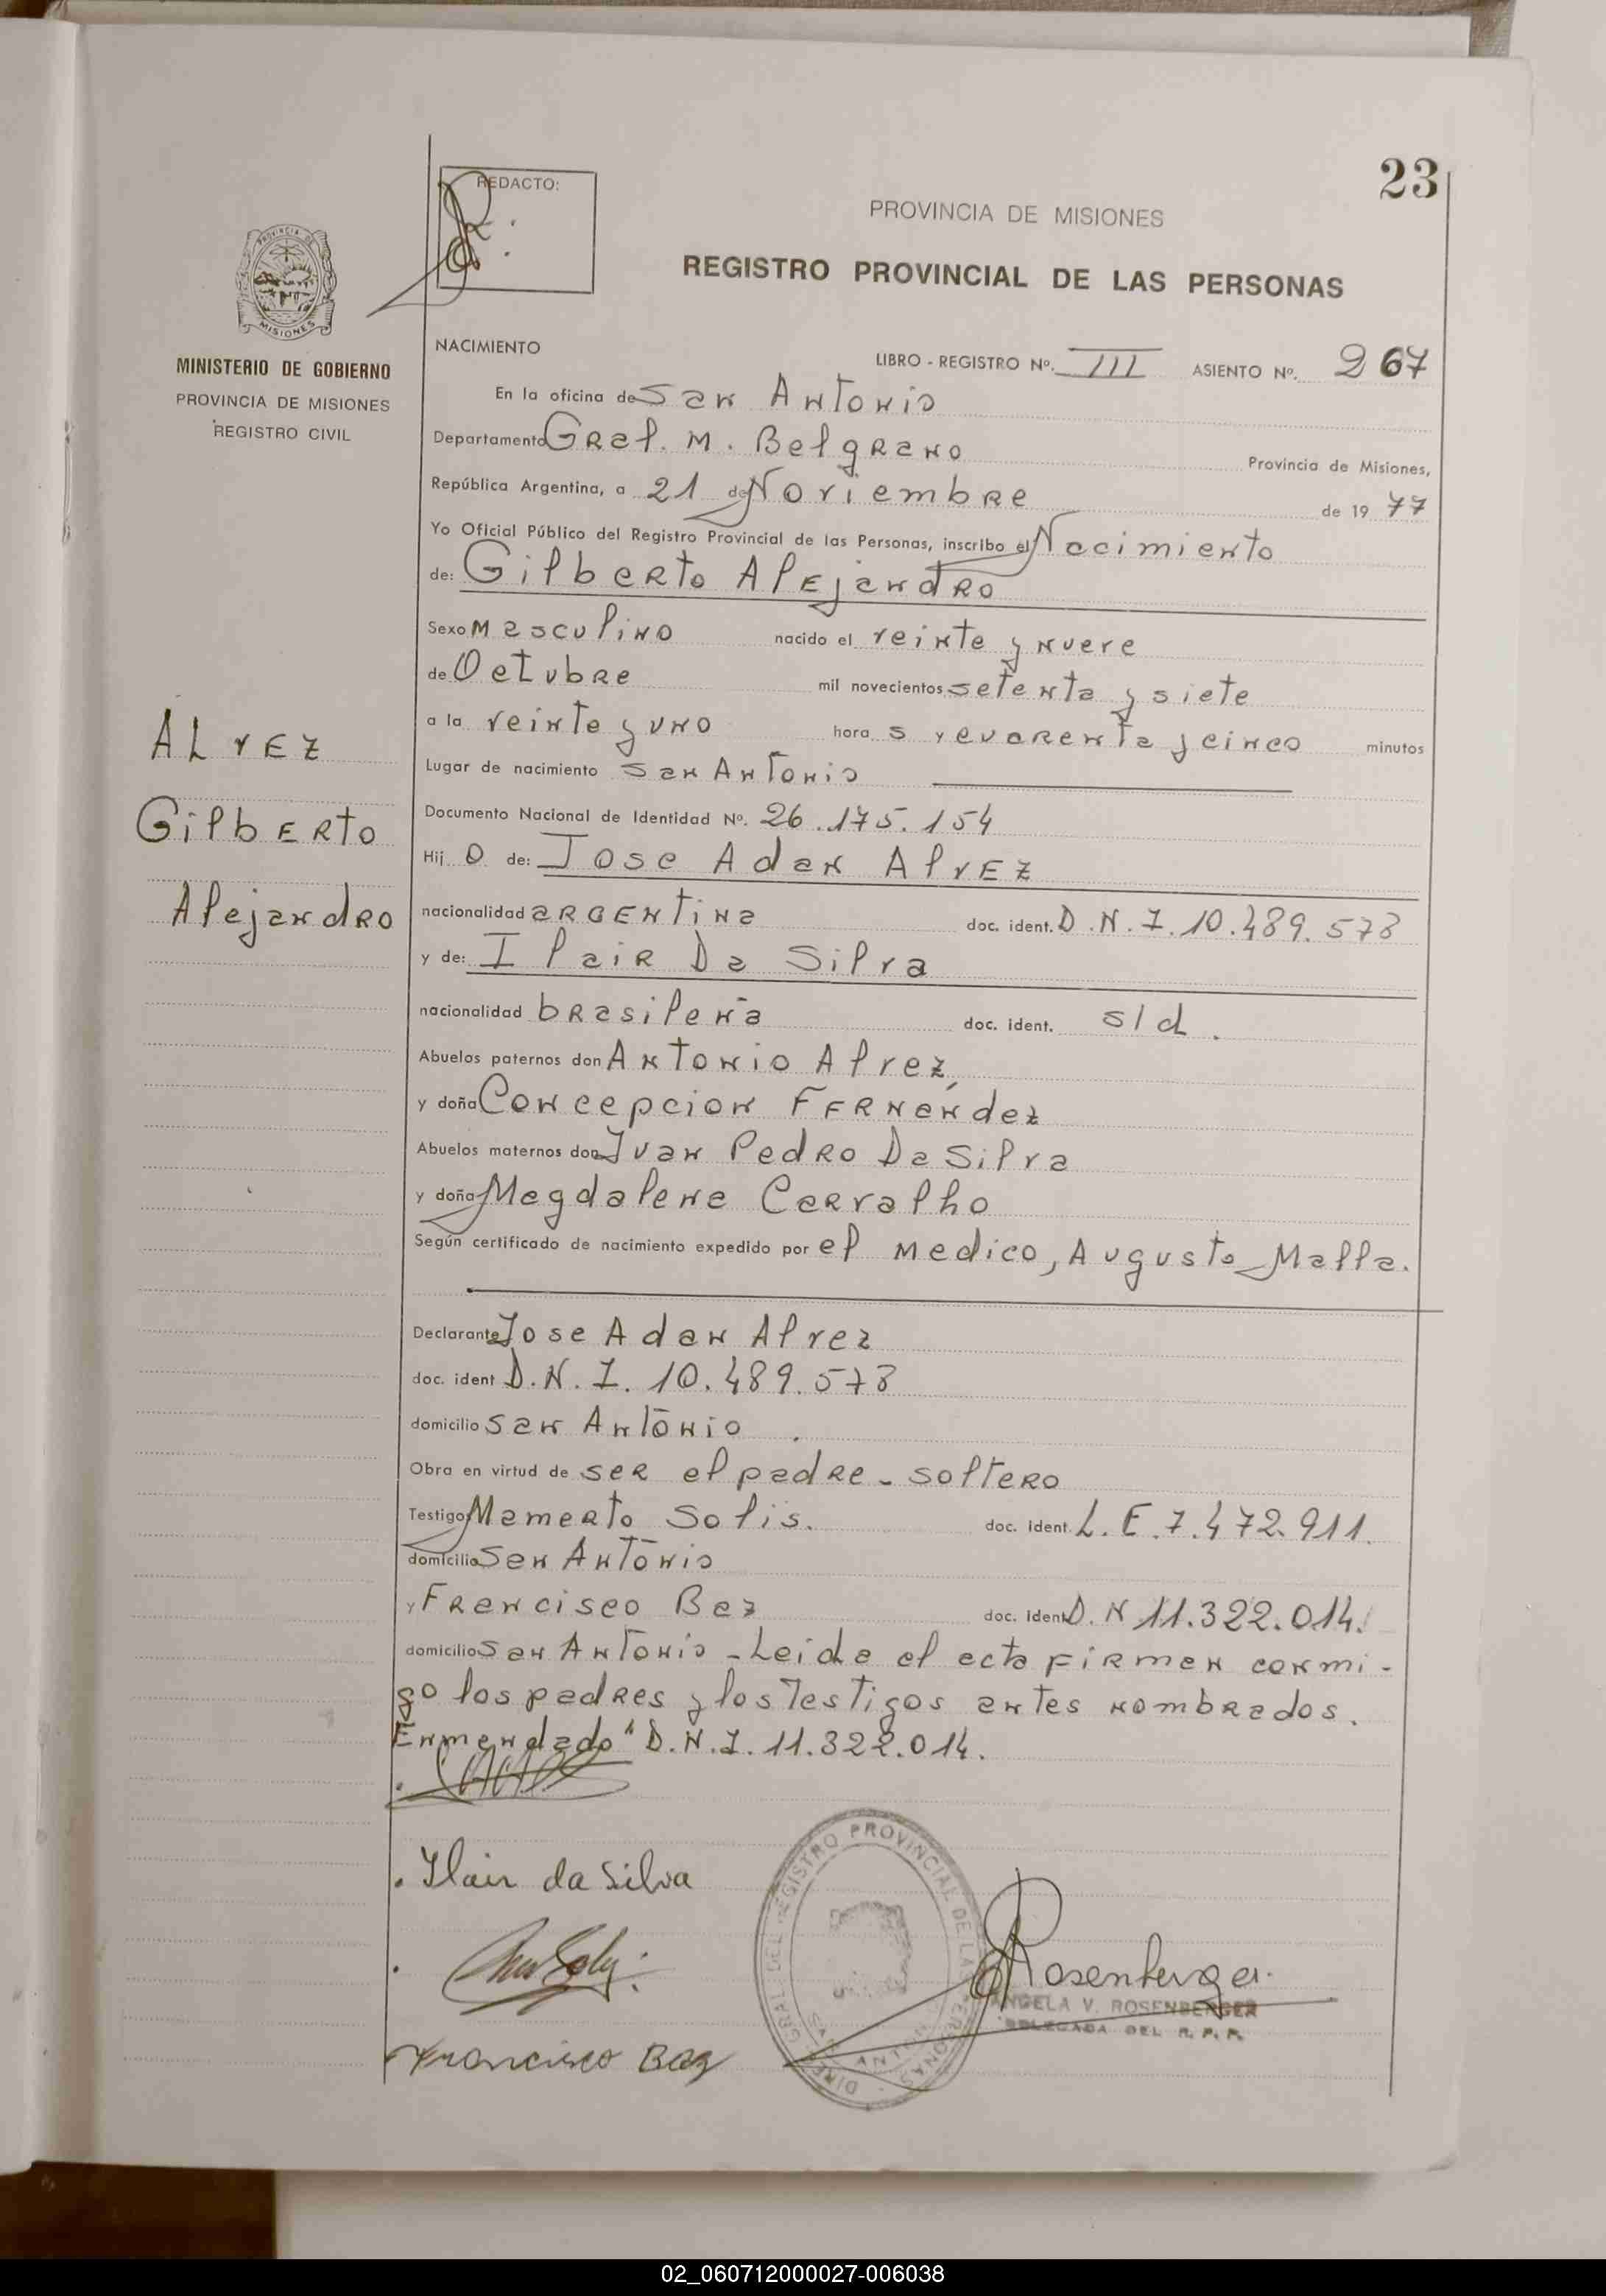 23
REDACTO:
PROVINCIA DE MISIONES
REGISTRO PROVINCIAL DE LAS PERSONAS
PROVINCIA DE
MISIONES
MINISTERIO DE GOBIERNO
PROVINCIA DE MISIONES
REGISTRO CIVIL
ALvEZ
GilbERto
AlejandRo
NACIMIENTO
LIBRO - REGISTRO Nº. III ASIENTO Nº. 267
En la oficina de San Antonio
Departamento Gral. M. Belgrano Provincia de Misiones,
República Argentina, a 21 de Noviembre de 1977
Yo Oficial Público del Registro Provincial de las Personas, inscribo el Nacimiento
de: Gilberto Alejandro
Sexo Masculino nacido el veinte y nueve
de Octubre mil novecientos setenta y siete
a la veinte y uno hora s y cuarenta y cinco minutos
Lugar de nacimiento San Antonio
Documento Nacional de Identidad Nº. 26.175.154
Hij o de: Jose Adan Alvez
nacionalidad argentina doc. ident. D.N.I. 10.489.578
y de: Ilair Da Silva
nacionalidad brasileña doc. ident. s/d.
Abuelos paternos don Antonio Alvez,
y doña Concepcion Fernández
Abuelos maternos don Juan Pedro Da Silva
y doña Magdalena Carvalho
Según certificado de nacimiento expedido por el medico, Augusto Malla.
Declarante Jose Adan Alvez
doc. ident D.N.I. 10.489.578
domicilio San Antonio.
Obra en virtud de ser el padre - soltero
Testigo Mamerto Solis. doc. ident. L.E. 7.472.911.
domicilio San Antonio
y Francisco Baz doc. ident D.N 11.322.014.
domicilio San Antonio - Leida el acta firman conmi-
go los padres y los testigos antes nombrados.
Enmendado "D.N.I. 11.322.014.
Ilair da Silva
Francisco Baz
Rosenberger
ANGELA V. ROSENBERGER
DELEGADA DEL R. P. P.
DIREC GRAL DEL REGISTRO PROVINCIAL DE LAS PERSONAS
02_060712000027-006038